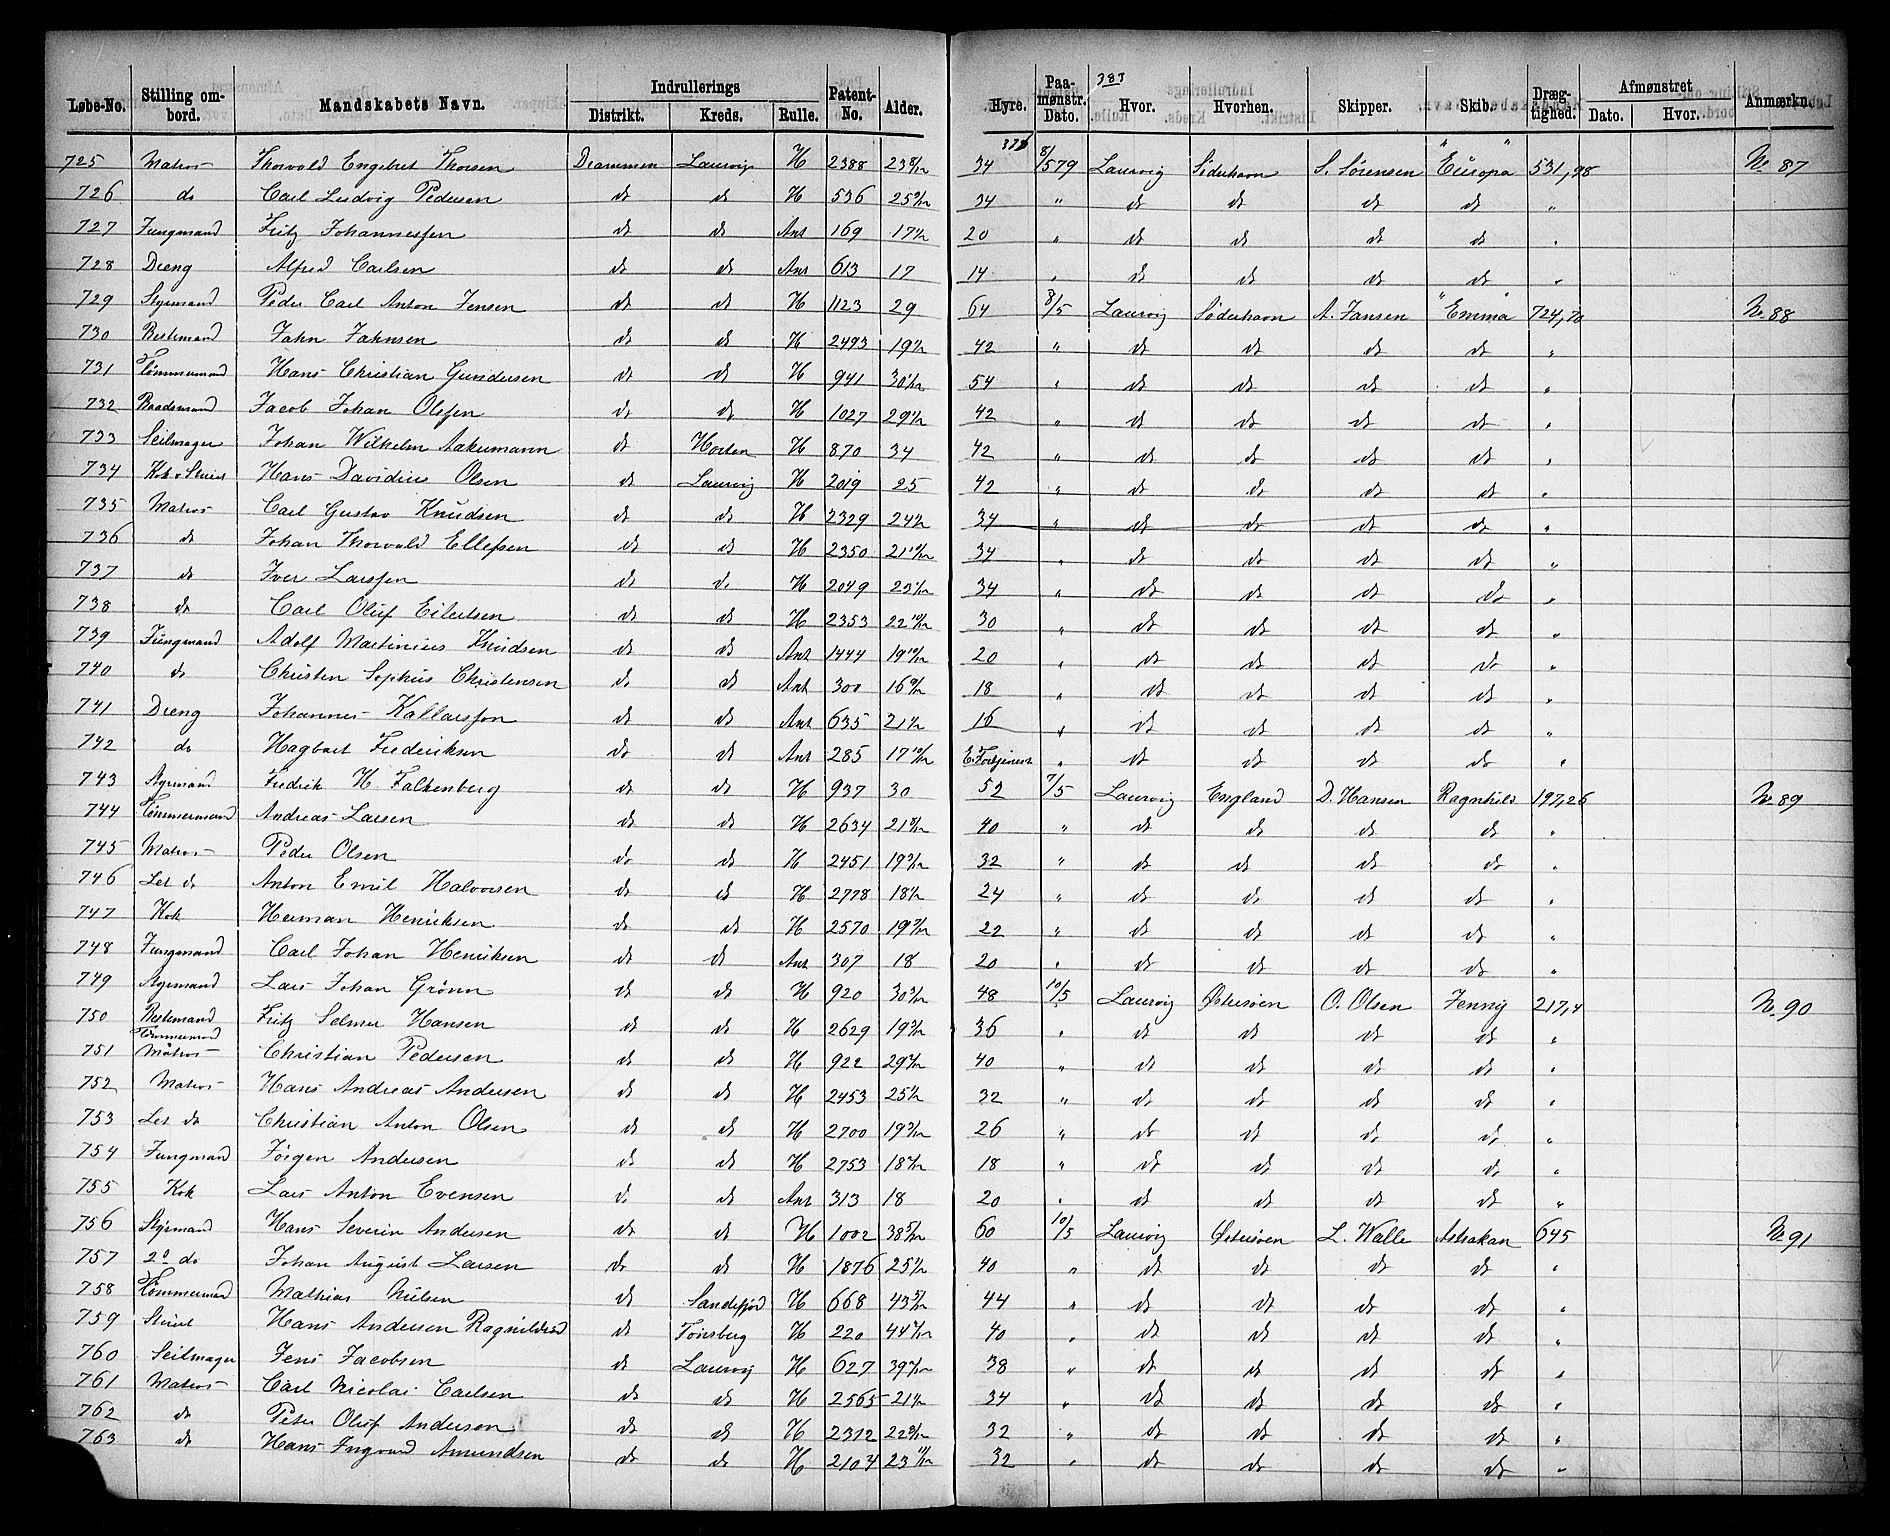 383
378
Løbe-No. | Stilling ombord. | Mandskabets Navn. | Indrullerings Distrikt. | Kreds. | Rulle. | Patent-No. | Alder. | Hyre. | Paamønstr. Dato. | Hvor. | Hvorhen. | Skipper. | Skib. | Drægtighed. | Afmønstret Dato. | Hvor. | Anmærkn.
725 | Matros | Thorvald Engebret Thorsen | Drammen | Laurvig | H | 2388 | 23 8/12 | 34 | 8/5 79 | Laurvig | Söderhavn | S. Sörensen | "Europa" | 531,98 | | | No 87
726 | do | Carl Ludvig Pedersen | do | do | H | 536 | | 34 | " | do | do | do | do | "
727 | Jungmand | Fritz Johannessen | do | do | Ant | 169 | | 20 | " | do | do | do | do | "
728 | Dreng | Alfred Carlsen | do | do | Ant | 613 | 17 | 14 | " | do | do | do | do | "
729 | Styrmand | Peder Carl Anton Jensen | do | do | H | 1123 | 29 | 64 | 8/5 | Laurvig | Söderhavn | A. Jansen | "Emma" | 724,70 | | | No 88
730 | Bestemand | John Johnsen | do | do | H | 2493 | | 42 | " | do | do | do | do | "
731 | Tömmermand | Hans Christian Gundersen | do | do | H | 941 | | 54 | " | do | do | do | do | "
732 | Baadsmand | Jacob Johan Olssen | do | do | H | 1027 | | 42 | " | do | do | do | do | "
733 | Seilmager | Johan Wilhelm Aakermann | do | Horten | H | 870 | 34 | 42 | " | do | do | do | do | "
734 | Kok o Stuert | Hans Davidius Olsen | do | Laurvig | H | 2019 | 25 | 42 | " | do | do | do | do | "
735 | Matros | Carl Gustav Knudsen | do | do | H | 2329 | | 34 | " | do | do | do | do | "
736 | do | Johan Thorvald Ellefsen | do | do | H | 2350 | | 34 | " | do | do | do | do | "
737 | do | Iver Larssen | do | do | H | 2049 | | 34 | " | do | do | do | do | "
738 | do | Carl Oluf Eilertsen | do | do | H | 2353 | | 30 | " | do | do | do | do | "
739 | Jungmand | Adolf Martinius Knudsen | do | do | Ant | 1444 | | 20 | " | do | do | do | do | "
740 | do | Christen Sophus Christensen | do | do | Ant | 300 | | 18 | " | do | do | do | do | "
741 | Dreng | Johannes Kallarsson | do | do | Ant | 635 | | 16 | " | do | do | do | do | "
742 | do | Hagbart Frederiksen | do | do | Ant | 285 | | E. Fortjeneste | " | do | do | do | do | "
743 | Styrmand | Fredrik H. Falkenberg | do | do | H | 937 | 30 | 52 | 7/5 | Laurvig | England | D. Hansen | Ragnhild | 197,26 | | | No 89
744 | Tömmermand | Andreas Larsen | do | do | H | 2634 | | 40 | " | do | do | do | do | "
745 | Matros | Peder Olsen | do | do | H | 2451 | | 32 | " | do | do | do | do | "
746 | Let do | Anton Emil Halvorsen | do | do | H | 2778 | | 24 | " | do | do | do | do | "
747 | Kok | Herman Henriksen | do | do | H | 2570 | | 22 | " | do | do | do | do | "
748 | Jungmand | Carl Johan Henriksen | do | do | Ant | 307 | 18 | 20 | " | do | do | do | do | "
749 | Styrmand | Lars Johan Grönn | do | do | H | 920 | | 48 | 10/5 | Laurvig | Østersöen | O. Olsen | Jenny | 217,4 | | | No 90
750 | Bestemand | Fritz Selmer Hansen | do | do | H | 2629 | | 36 | " | do | do | do | do | "
751 | Tömmermand Matros | Christian Pedersen | do | do | H | 922 | | 40 | " | do | do | do | do | "
752 | Matros | Hans Andreas Andersen | do | do | H | 2453 | | 32 | " | do | do | do | do | "
753 | Let do | Christian Anton Olsen | do | do | H | 2700 | | 26 | " | do | do | do | do | "
754 | Jungmand | Jörgen Andersen | do | do | H | 2753 | | 18 | " | do | do | do | do | "
755 | Kok | Lars Anton Evensen | do | do | Ant | 313 | 18 | 20 | " | do | do | do | do | "
756 | Styrmand | Hans Severin Andersen | do | do | H | 1002 | 38 5/12 | 60 | 10/5 | Laurvig | Østersöen | L. Walle | Astrakan | 645 | | | No 91
757 | 2o do | Johan August Larsen | do | do | H | 1876 | | 40 | " | do | do | do | do | "
758 | Tömmermand | Mathias Nielsen | do | Sandefjord | H | 668 | 43 5/12 | 44 | " | do | do | do | do | "
759 | Stuert | Hans Andersen | do | Tönsberg | H | 220 | | 40 | " | do | do | do | do | "
760 | Seilmager | Jens Jacobsen | do | Laurvig | H | 627 | | 38 | " | do | do | do | do | "
761 | Matros | Carl Nicolai Carlsen | do | do | H | 2565 | | 34 | " | do | do | do | do | "
762 | do | Peter Oluf Andersen | do | do | H | 2312 | | 32 | " | do | do | do | do | "
763 | do | Hans Ingvard Amundsen | do | do | H | 2104 | | 32 | " | do | do | do | do | "